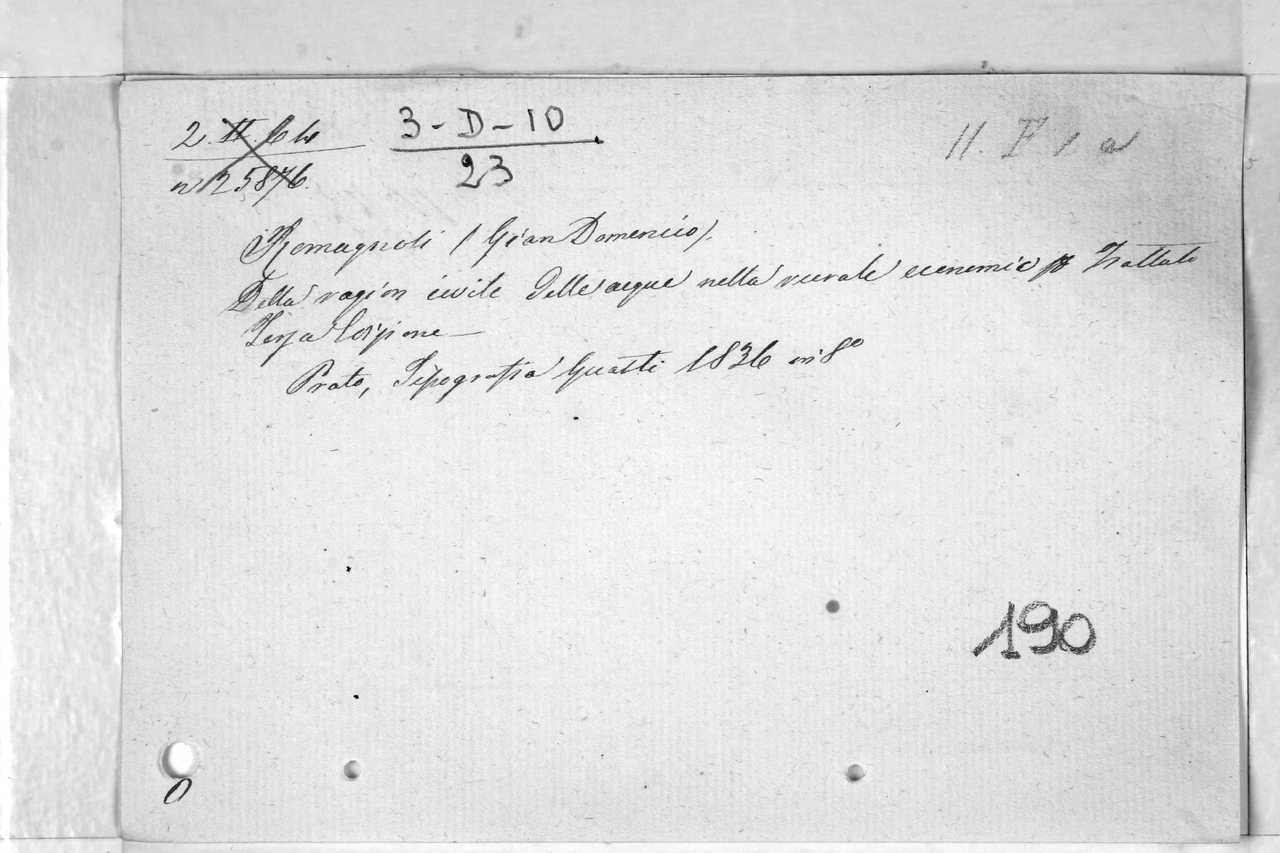 3-D-10
23
n 25876.
Romagnoli (Gian Domenico).
Della ragion civile delle acque nella rurale economia Trattato
Terza Edizione
Prato, Tipografia Guasti 1836 in 8º
190
0